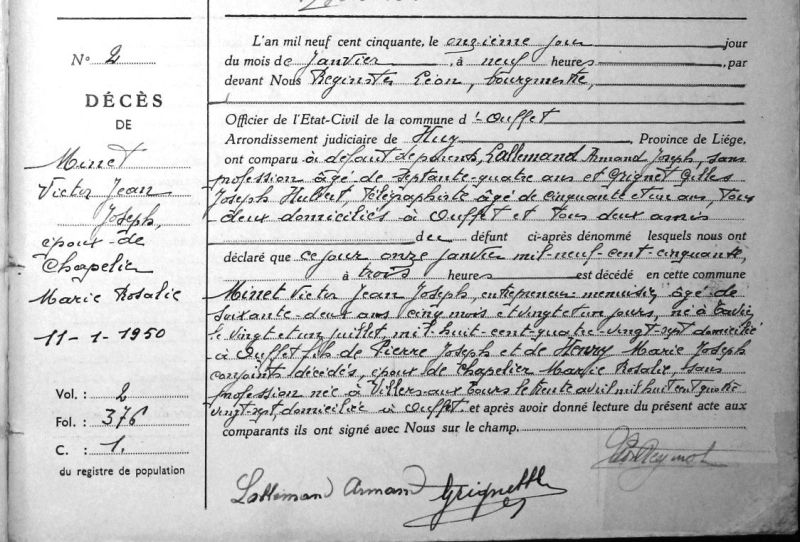 N° 2
DÉCÈS
DE
Minet
Victor Jean
Joseph,
époux de
Chapelier
Marie Rosalie
11-1-1950
Vol. : 2
Fol. : 376
C. : 1.
du registre de population
L'an mil neuf cent cinquante, le onzième jour jour
du mois de Janvier, à neuf heures, par
devant Nous Reginster Léon, bourgmestre,
Officier de l'Etat-Civil de la commune d'Ouffet
Arrondissement judiciaire de Huy, Province de Liége,
ont comparu à défaut de parents, Lallemand Armand Joseph, sans
profession âgé de septante-quatre ans et Grignet Gilles
Joseph Hubert, télégraphiste âgé de cinquante et un ans, tous
deux domiciliés à Ouffet et tous deux amis
du défunt ci-après dénommé lesquels nous ont
déclaré que ce jour onze janvier mil-neuf-cent-cinquante,
à trois heures est décédé en cette commune
Minet Victor Jean Joseph, entrepreneur-menuisier, âgé de
soixante-deux ans cinq mois et vingt et un jours, né à Tavier
le vingt et un juillet mil-huit-cent-quatre-vingt-sept domicilié
à Ouffet fils de Pierre Joseph et de Henry Marie Joseph
conjoints décédés, époux de Chapelier Marie Rosalie, sans
profession née à Villers-aux-Tours le trente avril mil huit cent quatre
vingt-sept, domiciliée à Ouffet et après avoir donné lecture du présent acte aux
comparants ils ont signé avec Nous sur le champ.
Lallemand Armand Grignet